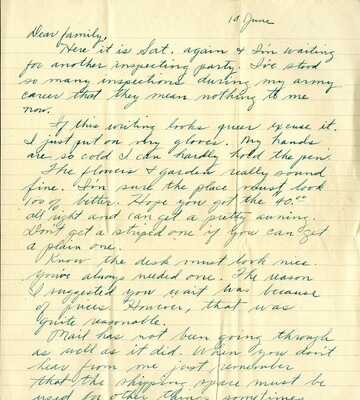 10 June
Dear family,
Here it is Sat. again & I'm waiting
for another inspecting party. I've stood
so many inspections during my army
career that they mean nothing to me
now.
If this writing looks queer excuse it.
I just put on my gloves. My hands
are so cold I can hardly hold the pen.
The flowers & garden really sound
fine. I'm sure the place must look
100% better. Hope you got the $40.00
all right and can get a pretty awning.
Don't get a striped one if you can get
a plain one.
Know the desk must look nice.
You've always needed one. The reason
I suggested you wait was because
of prices. However, that was
quite reasonable.
Mail has not been going through
as well as it did. When you don't
hear from me just remember
that the shipping space must be
used for other things sometimes